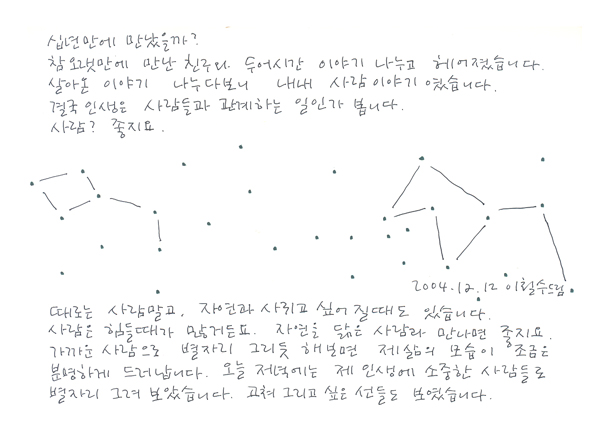 십년만에 만났을까?
참 오랫만에 만난 친구와 수어시간 이야기 나누고 헤어졌습니다.
살아온 이야기 나누다보니 내내 사람이야기 였습니다.
결국 인생은 사람들과 관계하는 일인가 봅니다.
사람? 좋지요.
2004.12.12 이철수드림
때로는 사람말고, 자연과 사귀고 싶어 질때도 있습니다.
사람은 힘들때가 많거든요. 자연을 닮은 사람과 만나면 좋지요.
가까운 사람으로 별자리 그리듯 해보면 제삶의 모습이 조금은
분명하게 드러납니다. 오늘 저녁에는 제 인생에 소중한 사람들로
별자리 그려 보았습니다. 고쳐 그리고 싶은 선들도 보였습니다.